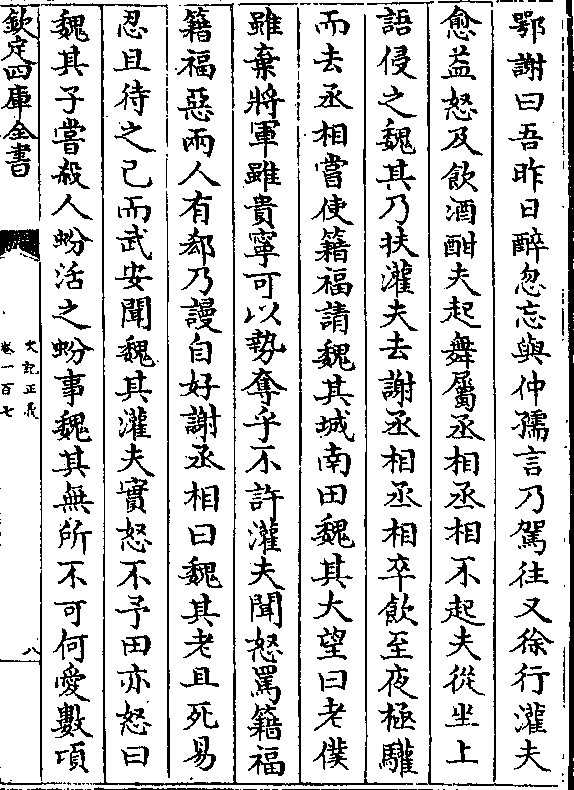 鄂謝曰吾昨日醉忽忘與仲孺言乃駕往又徐行灌夫
愈益怒及飲酒酣夫起舞屬丞相丞相不起夫從坐上
語侵之魏其乃扶灌夫去謝丞相丞相卒飲至夜極驩
而去丞相嘗使籍福請魏其城南田魏其大望曰老僕
雖棄將軍雖貴寧可以勢奪乎不許灌夫聞怒罵籍福
籍福惡兩人有郄乃謾自好謝丞相曰魏其老且死易
忍且待之已而武安聞魏其灌夫實怒不予田亦怒曰
魏其子嘗殺人蚡活之蚡事魏其無所不可何愛數頃
欽定四庫全書
史記正義
卷一百七
八